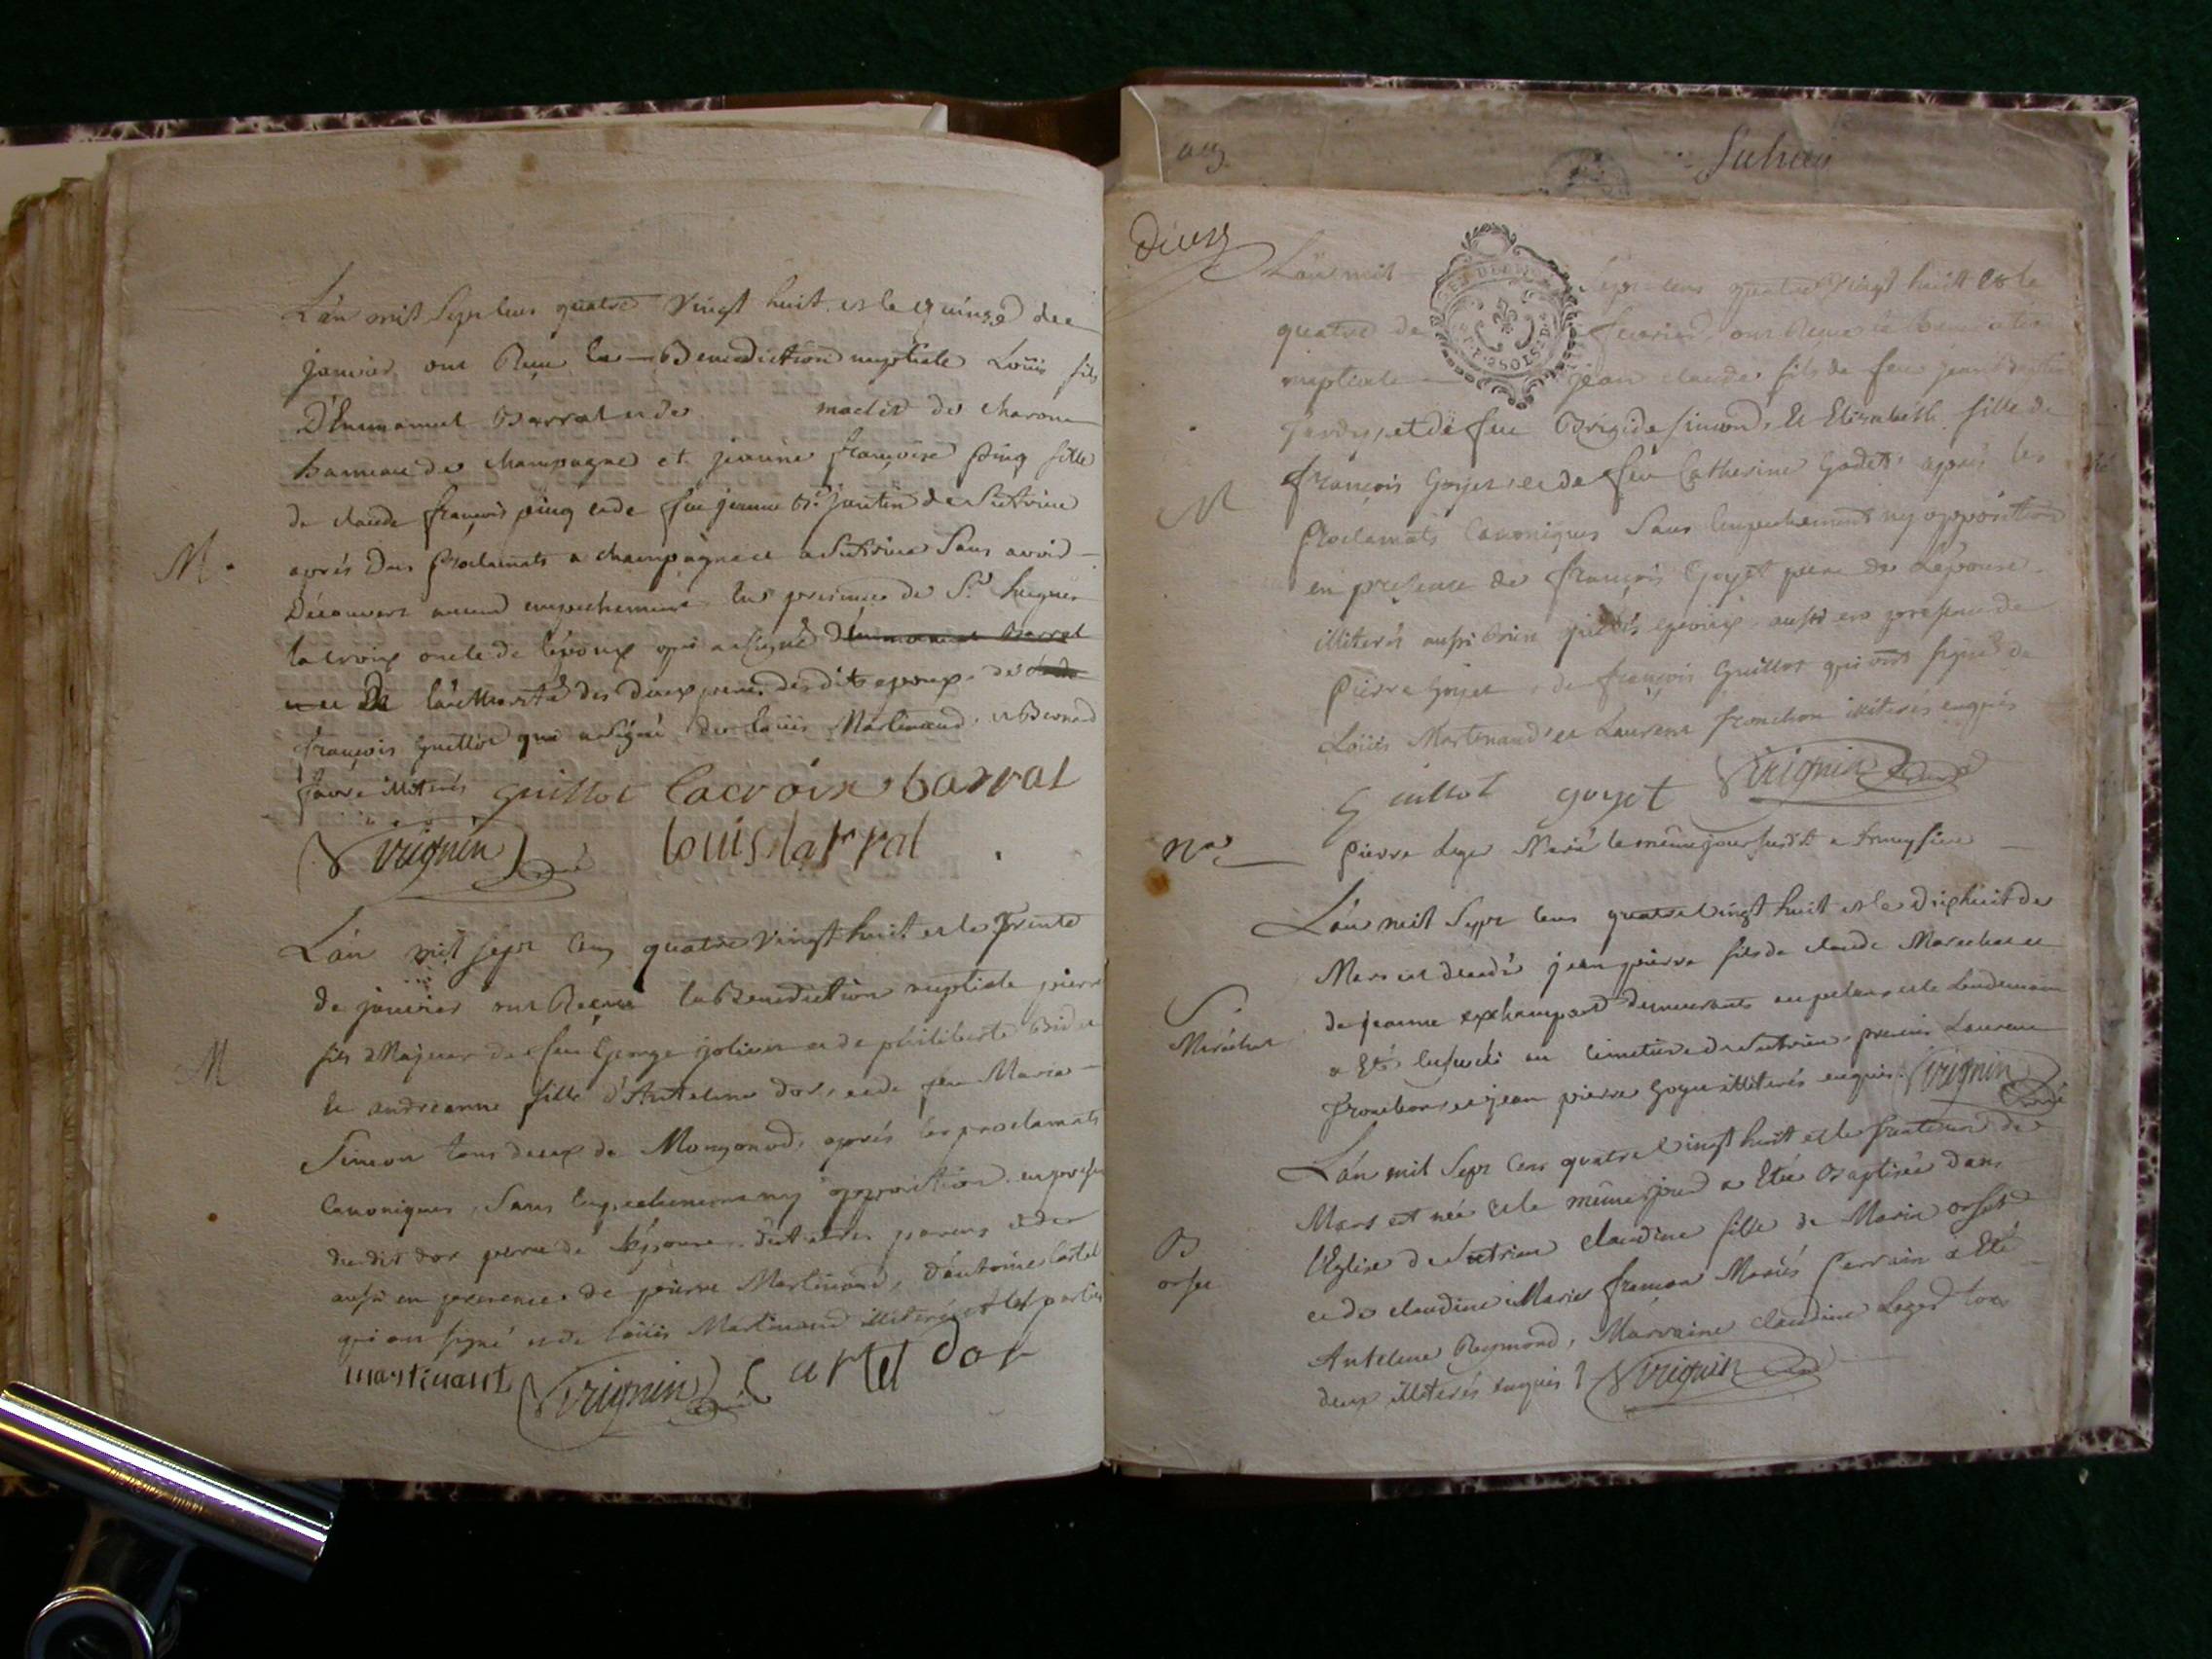 L'an mil Sept cens quatre Vingt huit et le quinze de
janvier ont Reçu la Benediction nuptiale Loüis fils
D'Emmanuel Barral et de maclet de charone
hameau de champagne et jeanne françoise pinq fille
de claude françois pinq et de feu jeanne Bte jantin de Sutrieu
après Des Proclamats a champagne et a Sutrieu Sans avoir
Découvert aucun empechement en presence de Sr hugues
M. lacroix oncle de l'époux qui a signé D'Emmanuel Barral
et de l'authorité des deux peres des dits epoux de
françois guillot qui a signé de loüis Martinand et Bernard
favre illiterés guillot lacroix barral
Virignin curé louis barral
L'an mil sept Cens quatre Vingt huit et le Trente
de janvier ont Recue la Benediction nuptiale pierre
fils Majeur de feu George joliet et de philiberte Bidat
M et andreanne fille d'Antelme dor, et de feu Marie
Simon tous deux de Mongonod, après les proclamats
Canoniques, Sans Empechement ny opposition en presence
du dit dor pere de l'épouse
aussi en presence de pierre Martinand, d'antoine Cartet
qui ont signé et de loüis Martinand illiteré et les parties
martinant Virignin curé Cartet dor
Sutrieu
Dieux
L'an mil Sept cens quatre Vingt huit et le
quatre de fevrier ont Recue la benediction
nuptiale jean claude fils de feu jean Baptiste
et de feu Brigide simond, et Elizabeth fille de
françois Goyet et de feu Catherine Godet après les
M Proclamats Canoniques Sans Empechement ny opposition
en presence de françois Goyet pere de L'épouse
illiterés aussi en presence de
Pierre Goyet, de françois Guillot qui ont signé de
Loüis Martinand et Laurent fronchon illiterés enquis
Guillot goyet Virignin curé
Nta Pierre Leger Marié le même jour susdit a
L'an mil Sept cens quatre Vingt huit et le dixhuit de
Mars est decedé jean pierre fils de claude Marechal et
de jeanne demeurants au et le Lendemain
Maréchal a Eté Enseveli au Cimetiere de Sutrieu, presens Laurent
fronchon, et jean pierre Goyet illiterés enquis Virignin curé
L'an mil Sept Cens quatre Vingt huit et le trentieme de
Mars est née et le même jour a Eté Baptisée dans
B l'Eglise de Sutrieu claudine fille de Marin orset
orset et de claudine Marie Mariés Parrain a Eté
Antelme Reymond, Marraine claudine Leger tous
deux illiterés enquis Virignin curé